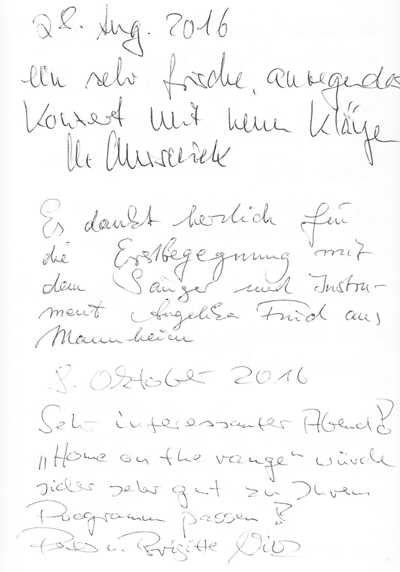 28. Aug. 2016
ein sehr frische, anregendes
Konzert mit neuen Klängen
Es dankt herzlich für
die Erstbegegnung mit
dem Sänger und Instru-
ment Angelika Fried aus
Mannheim
8. Oktober 2016
Sehr interessanter Abend!
„Home on the range" würde
sicher sehr gut zu Ihrem
Programm passen!
u. Brigitte